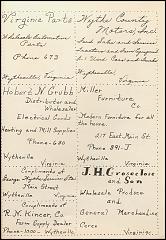 Virginia Parts
Wholesale Automotive
Parts
Phone 673
Wytheville, Virginia
Wythe County
Motors, Inc.
Ford Sales and Service
Used Cars and Trucks
Wytheville, Virginia
Hobert N. Grubb
Distributor and
Wholesaler
Electrical Goods
Heating and Mill Supplies
Phone-680
Wytheville
Virginia
Miller
Furniture
Co.
Modern Furniture for all
the home.
217 East Main St.
Phone 891-J
Wytheville
Virginia
Compliments of
Main Street
Wytheville
Virginia
Compliments of
R. N. Kincer, Co.
Farm Supply Dealer
Phone-1000 - Wytheville, Va.
J. H. Crocelose
and Son
Wholesale Produce
and
General Merchandise
Ceres
Virginia